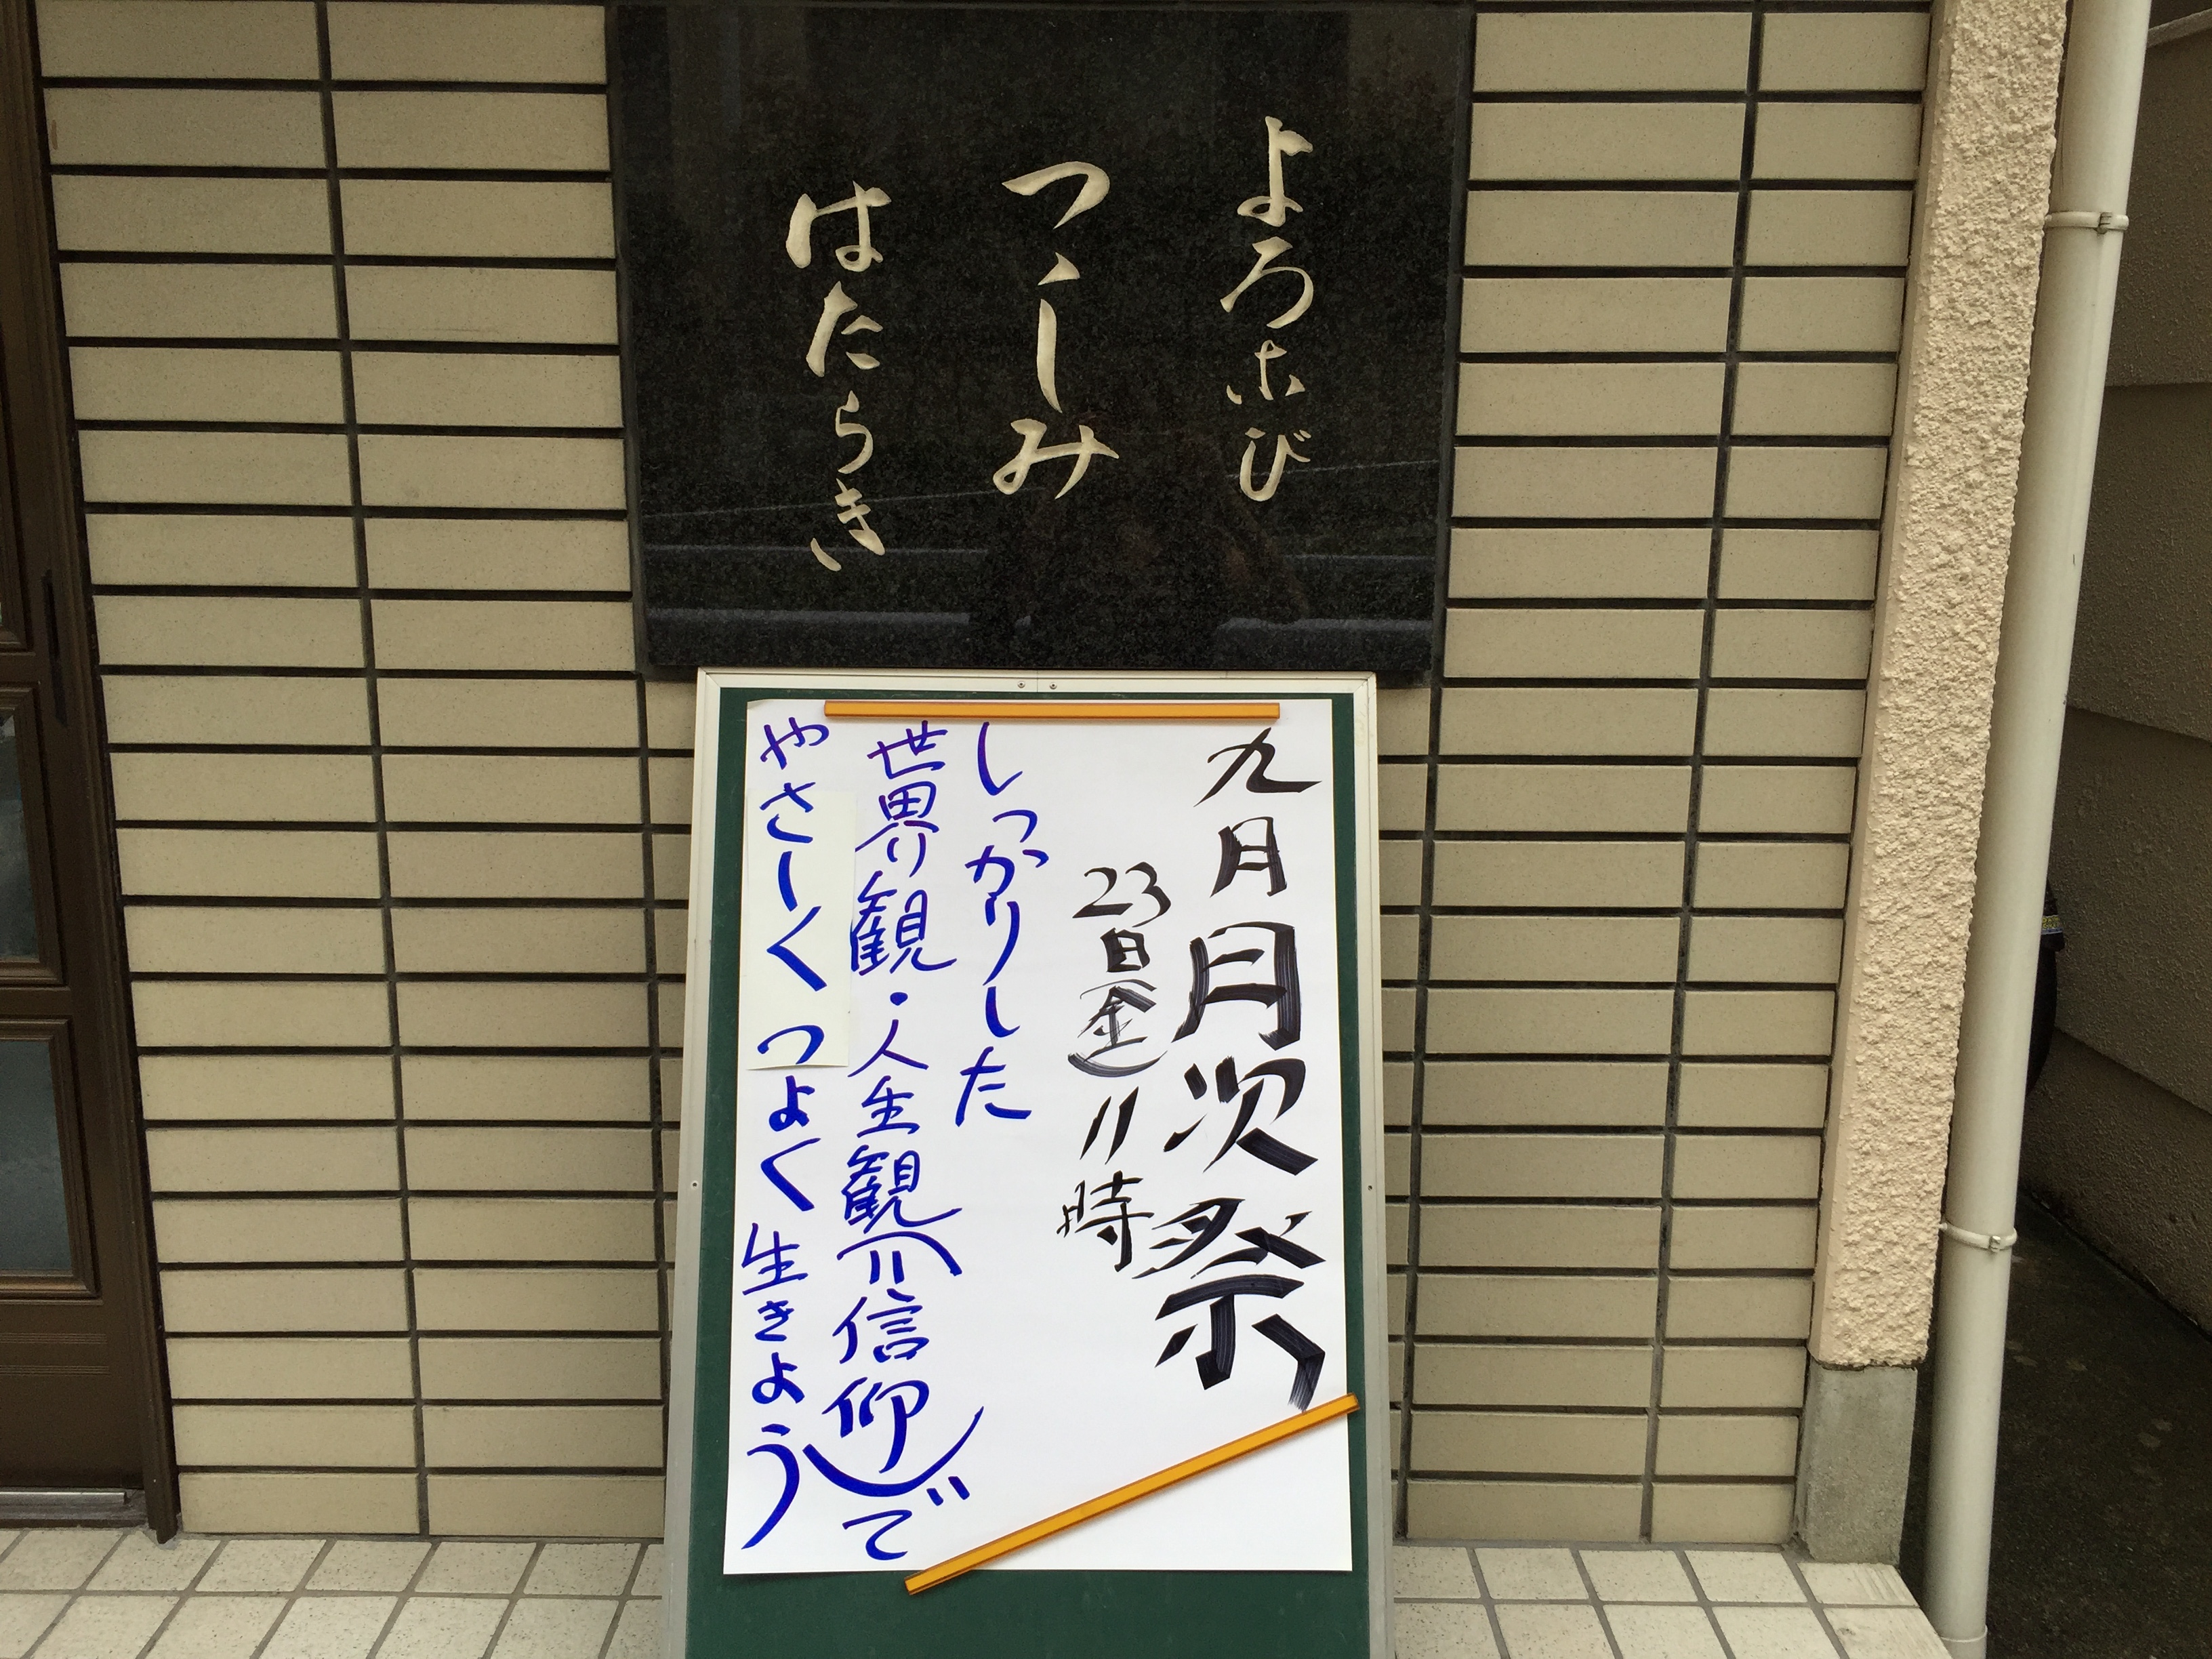 よろこび
つゝしみ
はたらき
九月月次祭
23日(金)11時
しっかりした
世界観・人生観(=信仰)で
やさしくつよく生きよう